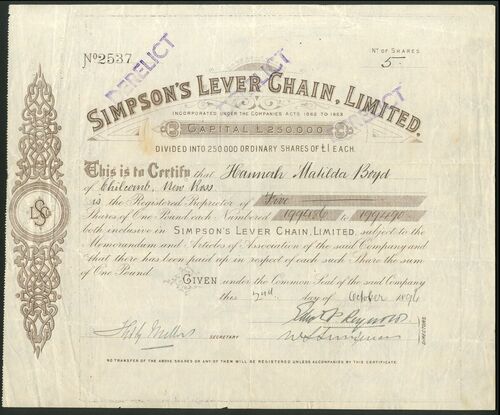 No 2537
DERELICT
No OF SHARES
5
DERELICT
DERELICT
SIMPSON'S LEVER CHAIN, LIMITED.
INCORPORATED UNDER THE COMPANIES ACTS 1862 TO 1893
CAPITAL £250,000
DIVIDED INTO 250,000 ORDINARY SHARES OF £1 EACH.
This is to Certify that Hannah Matilda Boyd
of Chilcomb, New Ross
is the Registered Proprietor of Five
Shares of One Pound each Numbered 199486 to 199490
both inclusive in SIMPSON'S LEVER CHAIN, LIMITED, subject to the
Memorandum and Articles of Association of the said Company and
that there has been paid up in respect of each such Share the sum
of One Pound
GIVEN under the Common Seal of the said Company
this 2nd day of October 1896
SECRETARY
DIRECTORS
NO TRANSFER OF THE ABOVE SHARES OR ANY OF THEM WILL BE REGISTERED UNLESS ACCOMPANIED BY THIS CERTIFICATE.